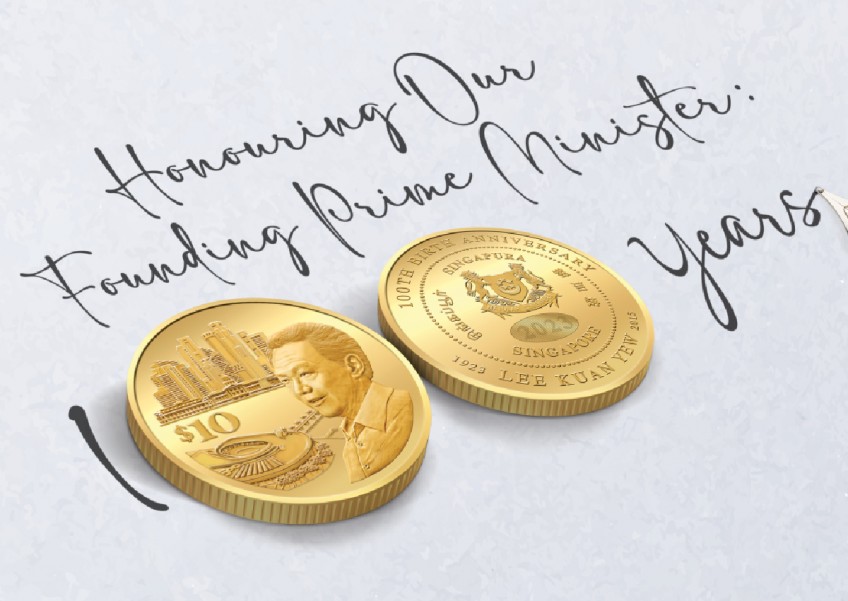 Honouring Our
Founding Prime Minister:
Years
100TH BIRTH ANNIVERSARY
SINGAPURA
新加坡
2023
SINGAPORE
1923 LEE KUAN YEW 2015
$10